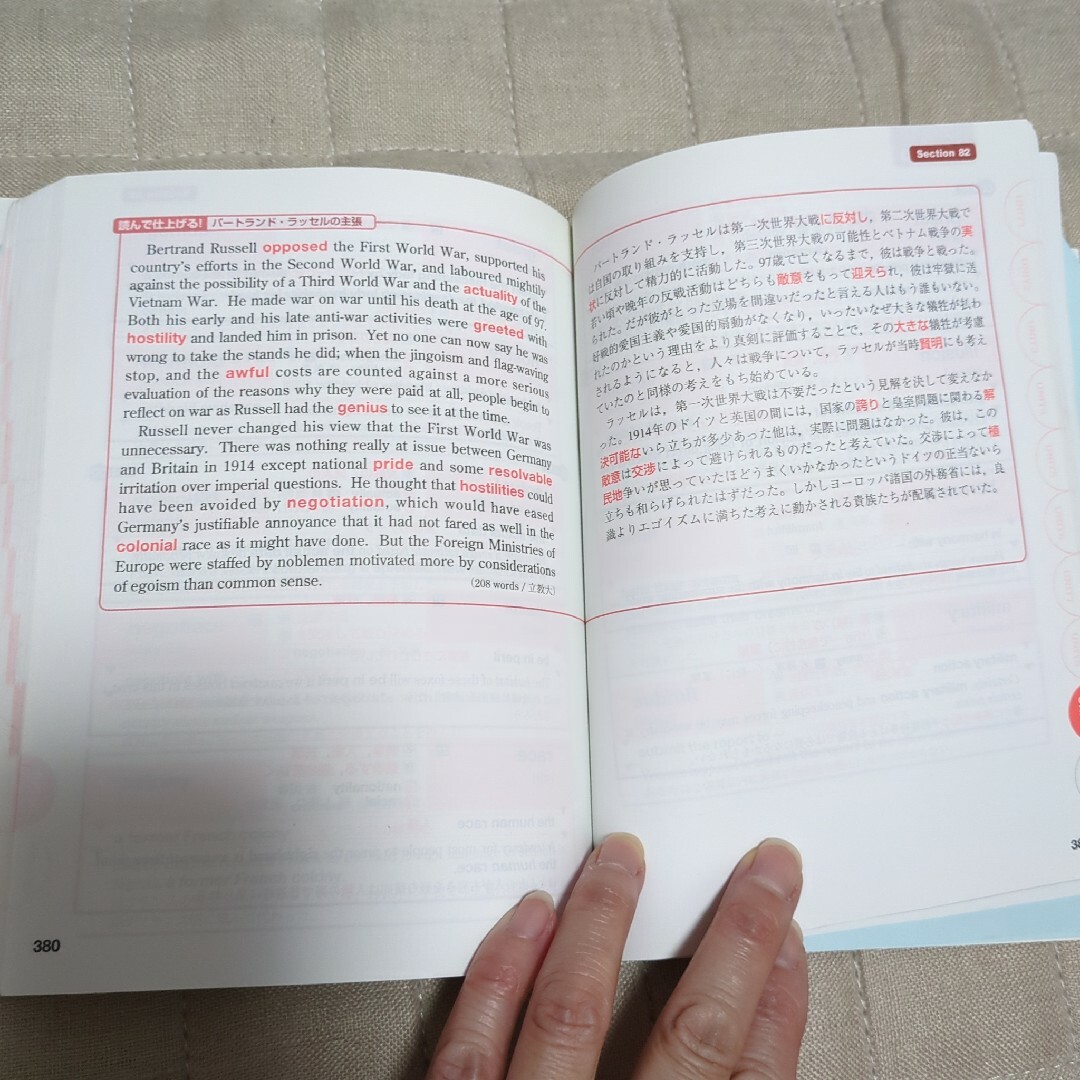 読んで仕上げる! バートランド・ラッセルの主張
Bertrand Russell opposed the First World War, supported his
country's efforts in the Second World War, and laboured mightily
against the possibility of a Third World War and the actuality of the
Vietnam War. He made war on war until his death at the age of 97.
Both his early and his late anti-war activities were greeted with
hostility and landed him in prison. Yet no one can now say he was
wrong to take the stands he did; when the jingoism and flag-waving
stop, and the awful costs are counted against a more serious
evaluation of the reasons why they were paid at all, people begin to
reflect on war as Russell had the genius to see it at the time.
Russell never changed his view that the First World War was
unnecessary. There was nothing really at issue between Germany
and Britain in 1914 except national pride and some resolvable
irritation over imperial questions. He thought that hostilities could
have been avoided by negotiation, which would have eased
Germany's justifiable annoyance that it had not fared as well in the
colonial race as it might have done. But the Foreign Ministries of
Europe were staffed by noblemen motivated more by considerations
of egoism than common sense.
(208 words / 立教大)
380
Section 82
バートランド・ラッセルは第一次世界大戦に反対し，第二次世界大戦で
は自国の取り組みを支持し，第三次世界大戦の可能性とベトナム戦争の実
状に反対して精力的に活動した。97歳で亡くなるまで，彼は戦争と戦った。
若い頃や晩年の反戦活動はどちらも敵意をもって迎えられ，彼は牢獄に送
られた。だが彼がとった立場を間違いだったと言える人はもう誰もいない。
好戦的愛国主義や愛国的扇動がなくなり，いったいなぜ大きな犠牲が払わ
れたのかという理由をより真剣に評価することで，その大きな犠牲が考慮
されるようになると，人々は戦争について，ラッセルが当時賢明にも考え
ていたのと同様の考えをもち始めている。
ラッセルは，第一次世界大戦は不要だったという見解を決して変えなか
った。1914年のドイツと英国の間には，国家の誇りと皇室問題に関わる解
決可能ないら立ちが多少あった他は，実際に問題はなかった。彼は，この
敵意は交渉によって避けられるものだったと考えていた。交渉によって植
民地争いが思っていたほどうまくいかなかったというドイツの正当ないら
立ちも和らげられたはずだった。しかしヨーロッパ諸国の外務省には，良
識よりエゴイズムに満ちた考えに動かされる貴族たちが配属されていた。